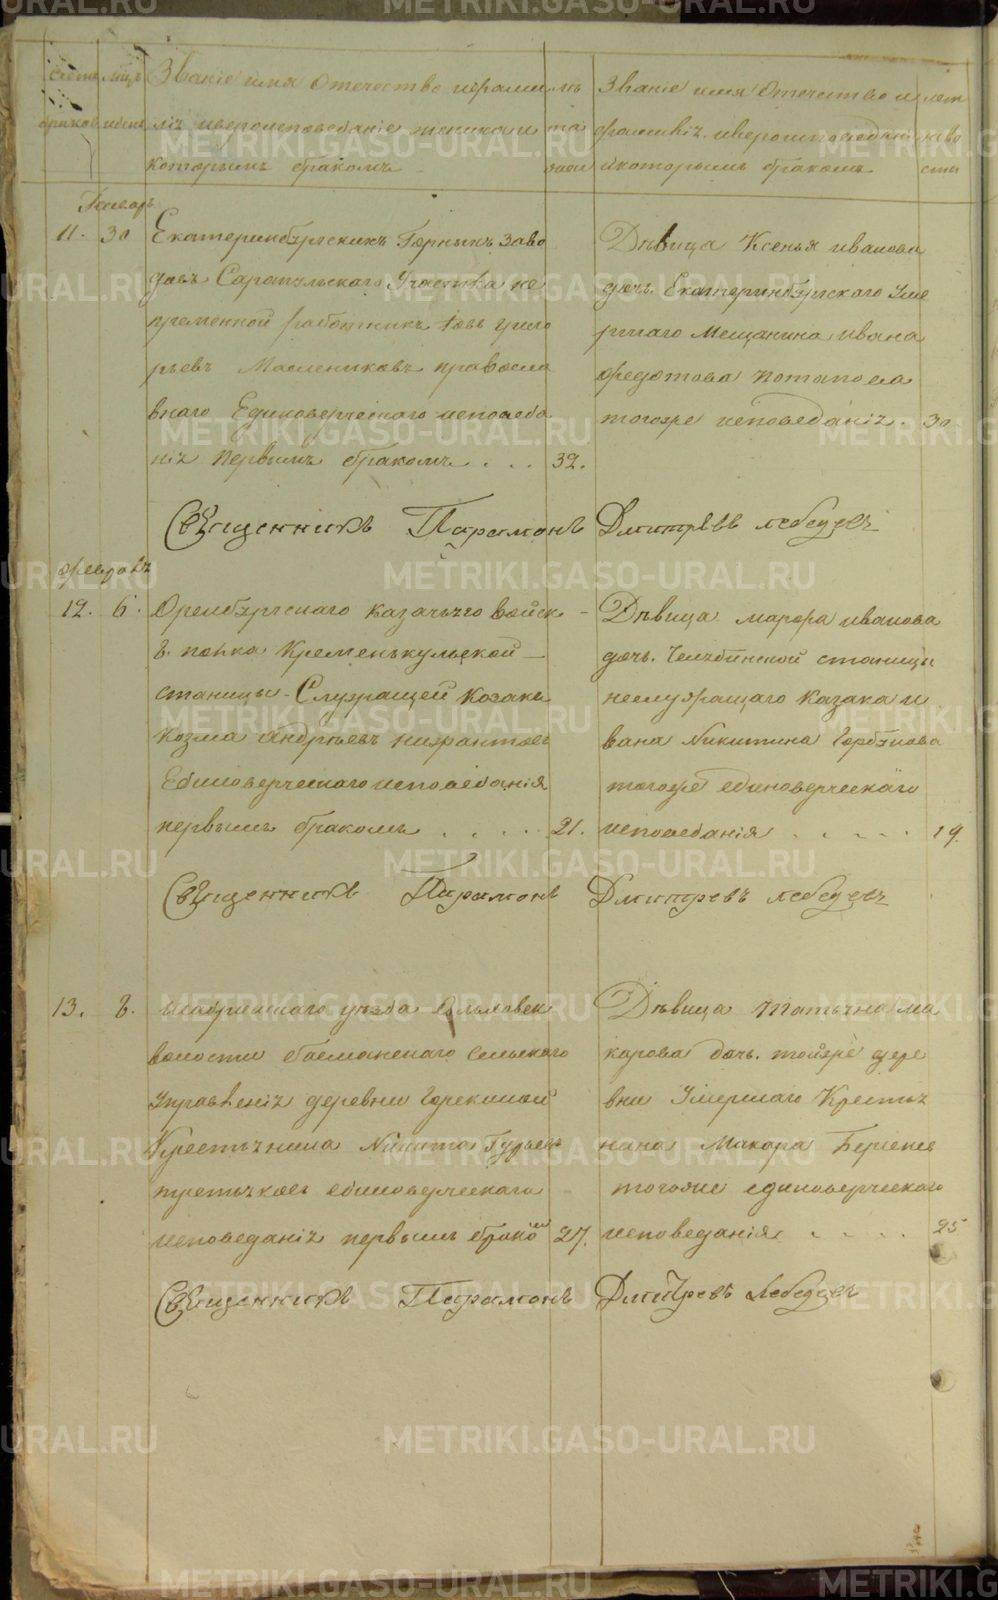 Счетъ браковъ
Званіе имя Отечество ифами
ліъ ивероисповеданіе жениха и
которымъ бракомъ
лѣ
та
Званіе имя Отечество и
и которымъ бракомъ
лет
невѣ
сты
Генварь
11. 30 Екатеринбургскихъ Горныхъ заво
довъ Сарапульскаго Участка не
пременной работникъ Іовъ григо
рьевъ Маслениковъ правосла
внаго Единоверческаго исповеда
нія первымъ бракомъ . . . 32.
Дѣвица Ксенья иванова
дочь Екатеринбургскаго Уме
ршаго Мещанина ивана
федотова Потапова
тогоже исповеданія. 30
Священникъ Парамонъ Дмитревъ лебедевъ
февраль
12. 6. Оренбургскаго казачьяго войск
6. полка Кременькульской
станицы Служащей Козакъ
Козма Андреевъ
Единоверческаго исповеданія
первымъ бракомъ . . . . 21.
Дѣвица марфа иванова
дочь Челябинской станицы
неслужащаго Казака и
вана Никитина Горбунова
тогоже единоверческаго
исповеданія . . . . . 19.
Священникъ Парамонъ Дмитревъ лебедевъ
13. 8. уезда
волости басманскаго Сельскаго
Управленія деревни
Крестьянина Никита Гурьевъ
единоверческаго
исповеданія первымъ бракомъ 27.
Дѣвица Татьяна ма
карова дочь тойже дере
вни Умершаго Крестья
нина Макара
тогоже единоверческаго
исповеданія . . . . 25
Священникъ Парамонъ Дмитревъ Лебедевъ
METRIKI.GASO-URAL.RU